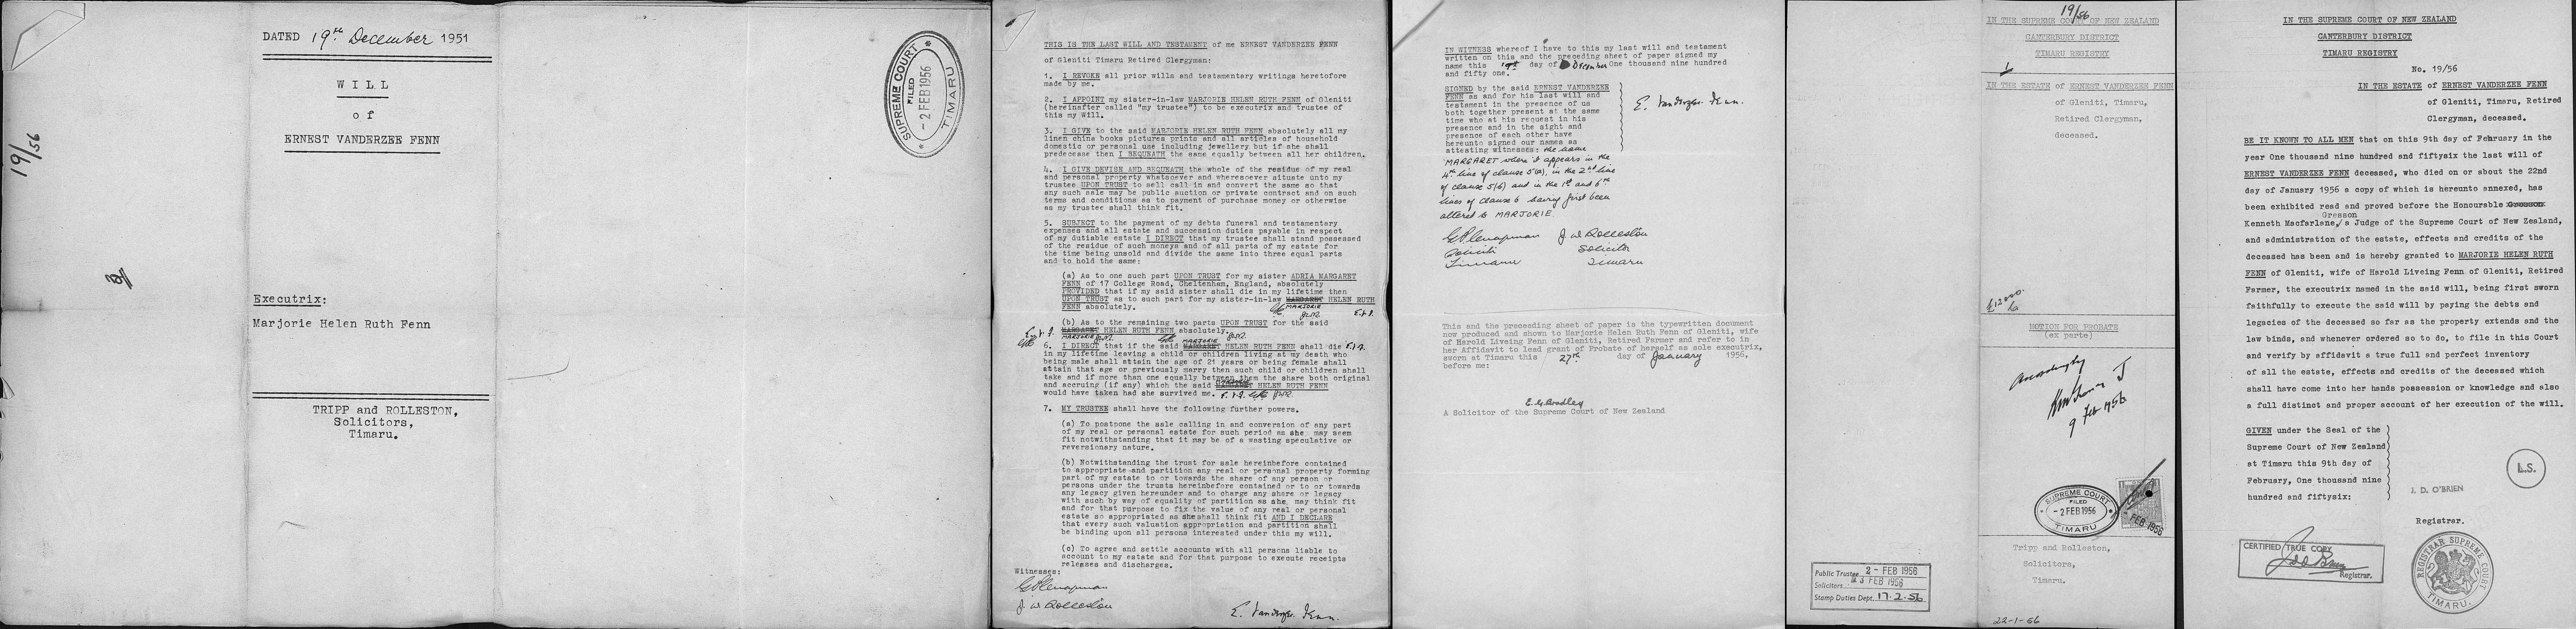 DATED 19th December 1951
WILL
of
ERNEST VANDERZEE FENN
Executrix:
Marjorie Helen Ruth Fenn
TRIPP and ROLLESTON,
Solicitors,
Timaru.
19/56
SUPREME COURT
FILED
- 2 FEB 1956
TIMARU
THIS IS THE LAST WILL AND TESTAMENT of me ERNEST VANDERZEE FENN
of Gleniti Timaru Retired Clergyman:
1. I REVOKE all prior wills and testamentary writings heretofore
made by me.
2. I APPOINT my sister-in-law MARJORIE HELEN RUTH FENN of Gleniti
(hereinafter called "my trustee") to be executrix and trustee of
this my Will.
3. I GIVE to the said MARJORIE HELEN RUTH FENN absolutely all my
linen china books pictures prints and all articles of household
domestic or personal use including jewellery but if she shall
predecease then I BEQUEATH the same equally between all her children.
4. I GIVE DEVISE AND BEQUEATH the whole of the residue of my real
and personal property whatsoever and wheresoever situate unto my
trustee UPON TRUST to sell call in and convert the same so that
any such sale may be public auction or private contract and on such
terms and conditions as to payment of purchase money or otherwise
as my trustee shall think fit.
5. SUBJECT to the payment of my debts funeral and testamentary
expenses and all estate and succession duties payable in respect
of my dutiable estate I DIRECT that my trustee shall stand possessed
of the residue of such moneys and of all parts of my estate for
the time being unsold and divide the same into three equal parts
and to hold the same:
(a) As to one such part UPON TRUST for my sister ADRIA MARGARET
FENN of 17 College Road, Cheltenham, England, absolutely
PROVIDED that if my said sister shall die in my lifetime then
UPON TRUST as to such part for my sister-in-law MARGARET HELEN RUTH
FENN absolutely. MARJORIE
E.v.F.
(b) As to the remaining two parts UPON TRUST for the said
MARGARET HELEN RUTH FENN absolutely.
MARJORIE
MARJORIE
6. I DIRECT that if the said MARGARET HELEN RUTH FENN shall die
in my lifetime leaving a child or children living at my death who
being male shall attain the age of 21 years or being female shall
attain that age or previously marry then such child or children shall
take and if more than one equally between them the share both original
and accruing (if any) which the said MARGARET HELEN RUTH FENN
would have taken had she survived me.
7. MY TRUSTEE shall have the following further powers.
(a) To postpone the sale calling in and conversion of any part
of my real or personal estate for such period as she may seem
fit notwithstanding that it may be of a wasting speculative or
reversionary nature.
(b) Notwithstanding the trust for sale hereinbefore contained
to appropriate and partition any real or personal property forming
part of my estate to or towards the share of any person or
persons under the trusts hereinbefore contained or to or towards
any legacy given hereunder and to charge any share or legacy
with such by way of equality of partition as she may think fit
and for that purpose to fix the value of any real or personal
estate so appropriated as she shall think fit AND I DECLARE
that every such valuation appropriation and partition shall
be binding upon all persons interested under this my will.
(c) To agree and settle accounts with all persons liable to
account to my estate and for that purpose to execute receipts
releases and discharges.
Witnesses:
J W Rolleston
E. Vanderzee Fenn.
IN WITNESS whereof I have to this my last will and testament
written on this and the preceding sheet of paper signed my
name this 19th day of December One thousand nine hundred
and fifty one.
SIGNED by the said ERNEST VANDERZEE
FENN as and for his last will and
testament in the presence of us
both together present at the same
time who at his request in his
presence and in the sight and
presence of each other have
hereunto signed our names as
attesting witnesses: the name
MARGARET where it appears in the
4th line of clause 5(a), in the 2nd line
of clause 5(b) and in the 1st and 6th
lines of clause 6 having first been
altered to MARJORIE.
E. Vanderzee Fenn.
J W Rolleston
Gleniti Solicitor
Timaru Timaru
This and the preceeding sheet of paper is the typewritten document
now produced and shown to Marjorie Helen Ruth Fenn of Gleniti, wife
of Harold Liveing Fenn of Gleniti, Retired Farmer and refer to in
her Affidavit to lead grant of Probate of herself as sole executrix,
sworn at Timaru this 27th day of January 1956,
before me:
E. G. Bradley
A Solicitor of the Supreme Court of New Zealand
19/56
IN THE SUPREME COURT OF NEW ZEALAND
CANTERBURY DISTRICT
TIMARU REGISTRY
IN THE ESTATE of ERNEST VANDERZEE FENN
of Gleniti, Timaru,
Retired Clergyman,
deceased.
MOTION FOR PROBATE
(ex parte)
Accordingly
9 Feb 1956
SUPREME COURT
FILED
- 2 FEB 1956
TIMARU
FEB 1956
Tripp and Rolleston,
Solicitors,
Timaru.
Public Trustee 2 - FEB 1956
Solicitors 3 FEB 1956
Stamp Duties Dept. 17.2.56
22-1-56
IN THE SUPREME COURT OF NEW ZEALAND
CANTERBURY DISTRICT
TIMARU REGISTRY
No. 19/56
IN THE ESTATE of ERNEST VANDERZEE FENN
of Gleniti, Timaru, Retired
Clergyman, deceased.
BE IT KNOWN TO ALL MEN that on this 9th day of February in the
year One thousand nine hundred and fiftysix the last will of
ERNEST VANDERZEE FENN deceased, who died on or about the 22nd
day of January 1956 a copy of which is hereunto annexed, has
been exhibited read and proved before the Honourable
Gresson
Kenneth Macfarlane/a Judge of the Supreme Court of New Zealand,
and administration of the estate, effects and credits of the
deceased has been and is hereby granted to MARJORIE HELEN RUTH
FENN of Gleniti, wife of Harold Liveing Fenn of Gleniti, Retired
Farmer, the executrix named in the said will, being first sworn
faithfully to execute the said will by paying the debts and
legacies of the deceased so far as the property extends and the
law binds, and whenever ordered so to do, to file in this Court
and verify by affidavit a true full and perfect inventory
of all the estate, effects and credits of the deceased which
shall have come into her hands possession or knowledge and also
a full distinct and proper account of her execution of the will.
GIVEN under the Seal of the
Supreme Court of New Zealand
at Timaru this 9th day of
February, One thousand nine
hundred and fiftysix:
L.S.
J. D. O'BRIEN
Registrar.
CERTIFIED TRUE COPY
Registrar.
REGISTRAR SUPREME COURT
TIMARU.